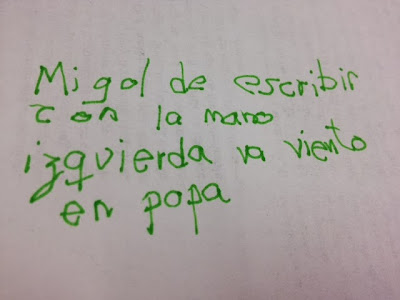 Mi gol de escribir
con la mano
izquierda va viento
en popa